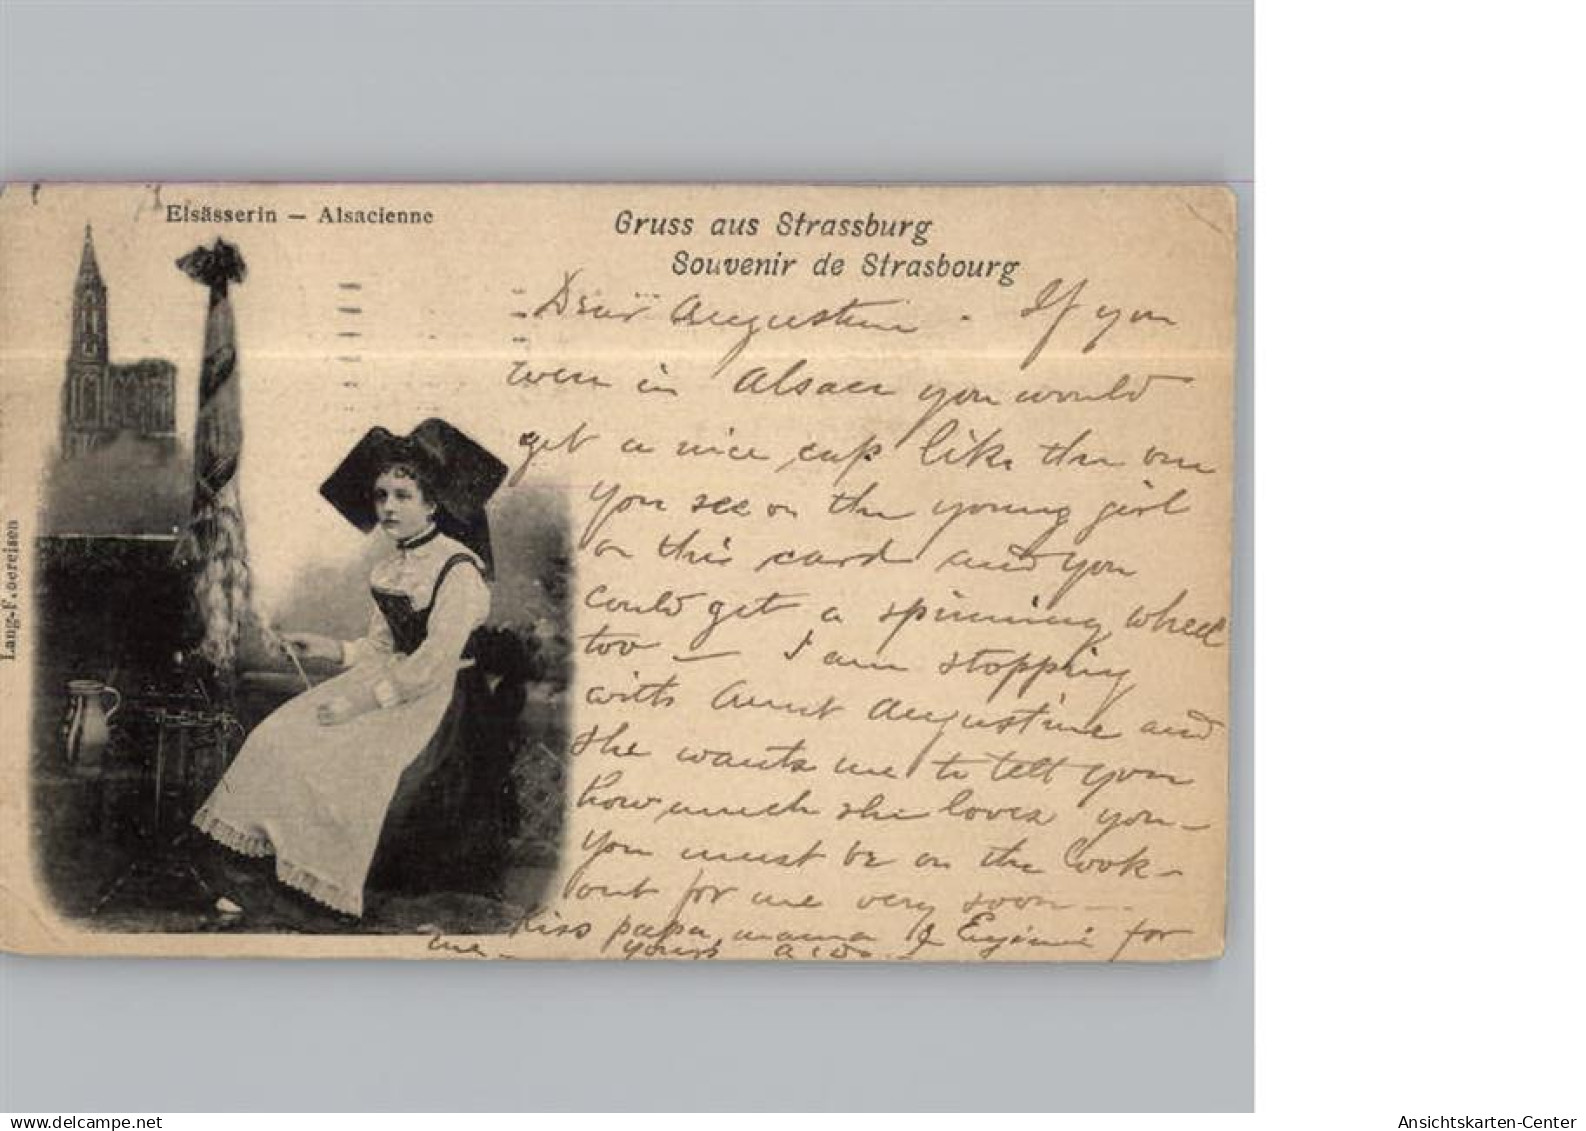 Elsässerin – Alsacienne
Gruss aus Strassburg
Souvenir de Strasbourg
Dear Augustine - If you
were in Alsace you would
get a nice cap like the one
you see on the young girl
on this card and you
could get a spinning wheel
too — I am stopping
with Aunt Augustine and
she wants me to tell you
how much she loves you -
You must be on the look-
out for me very soon —
Kiss papa, mama & Eugénie for
me - yours
Lang-F.
delcampe.net
Ansichtskarten-Center